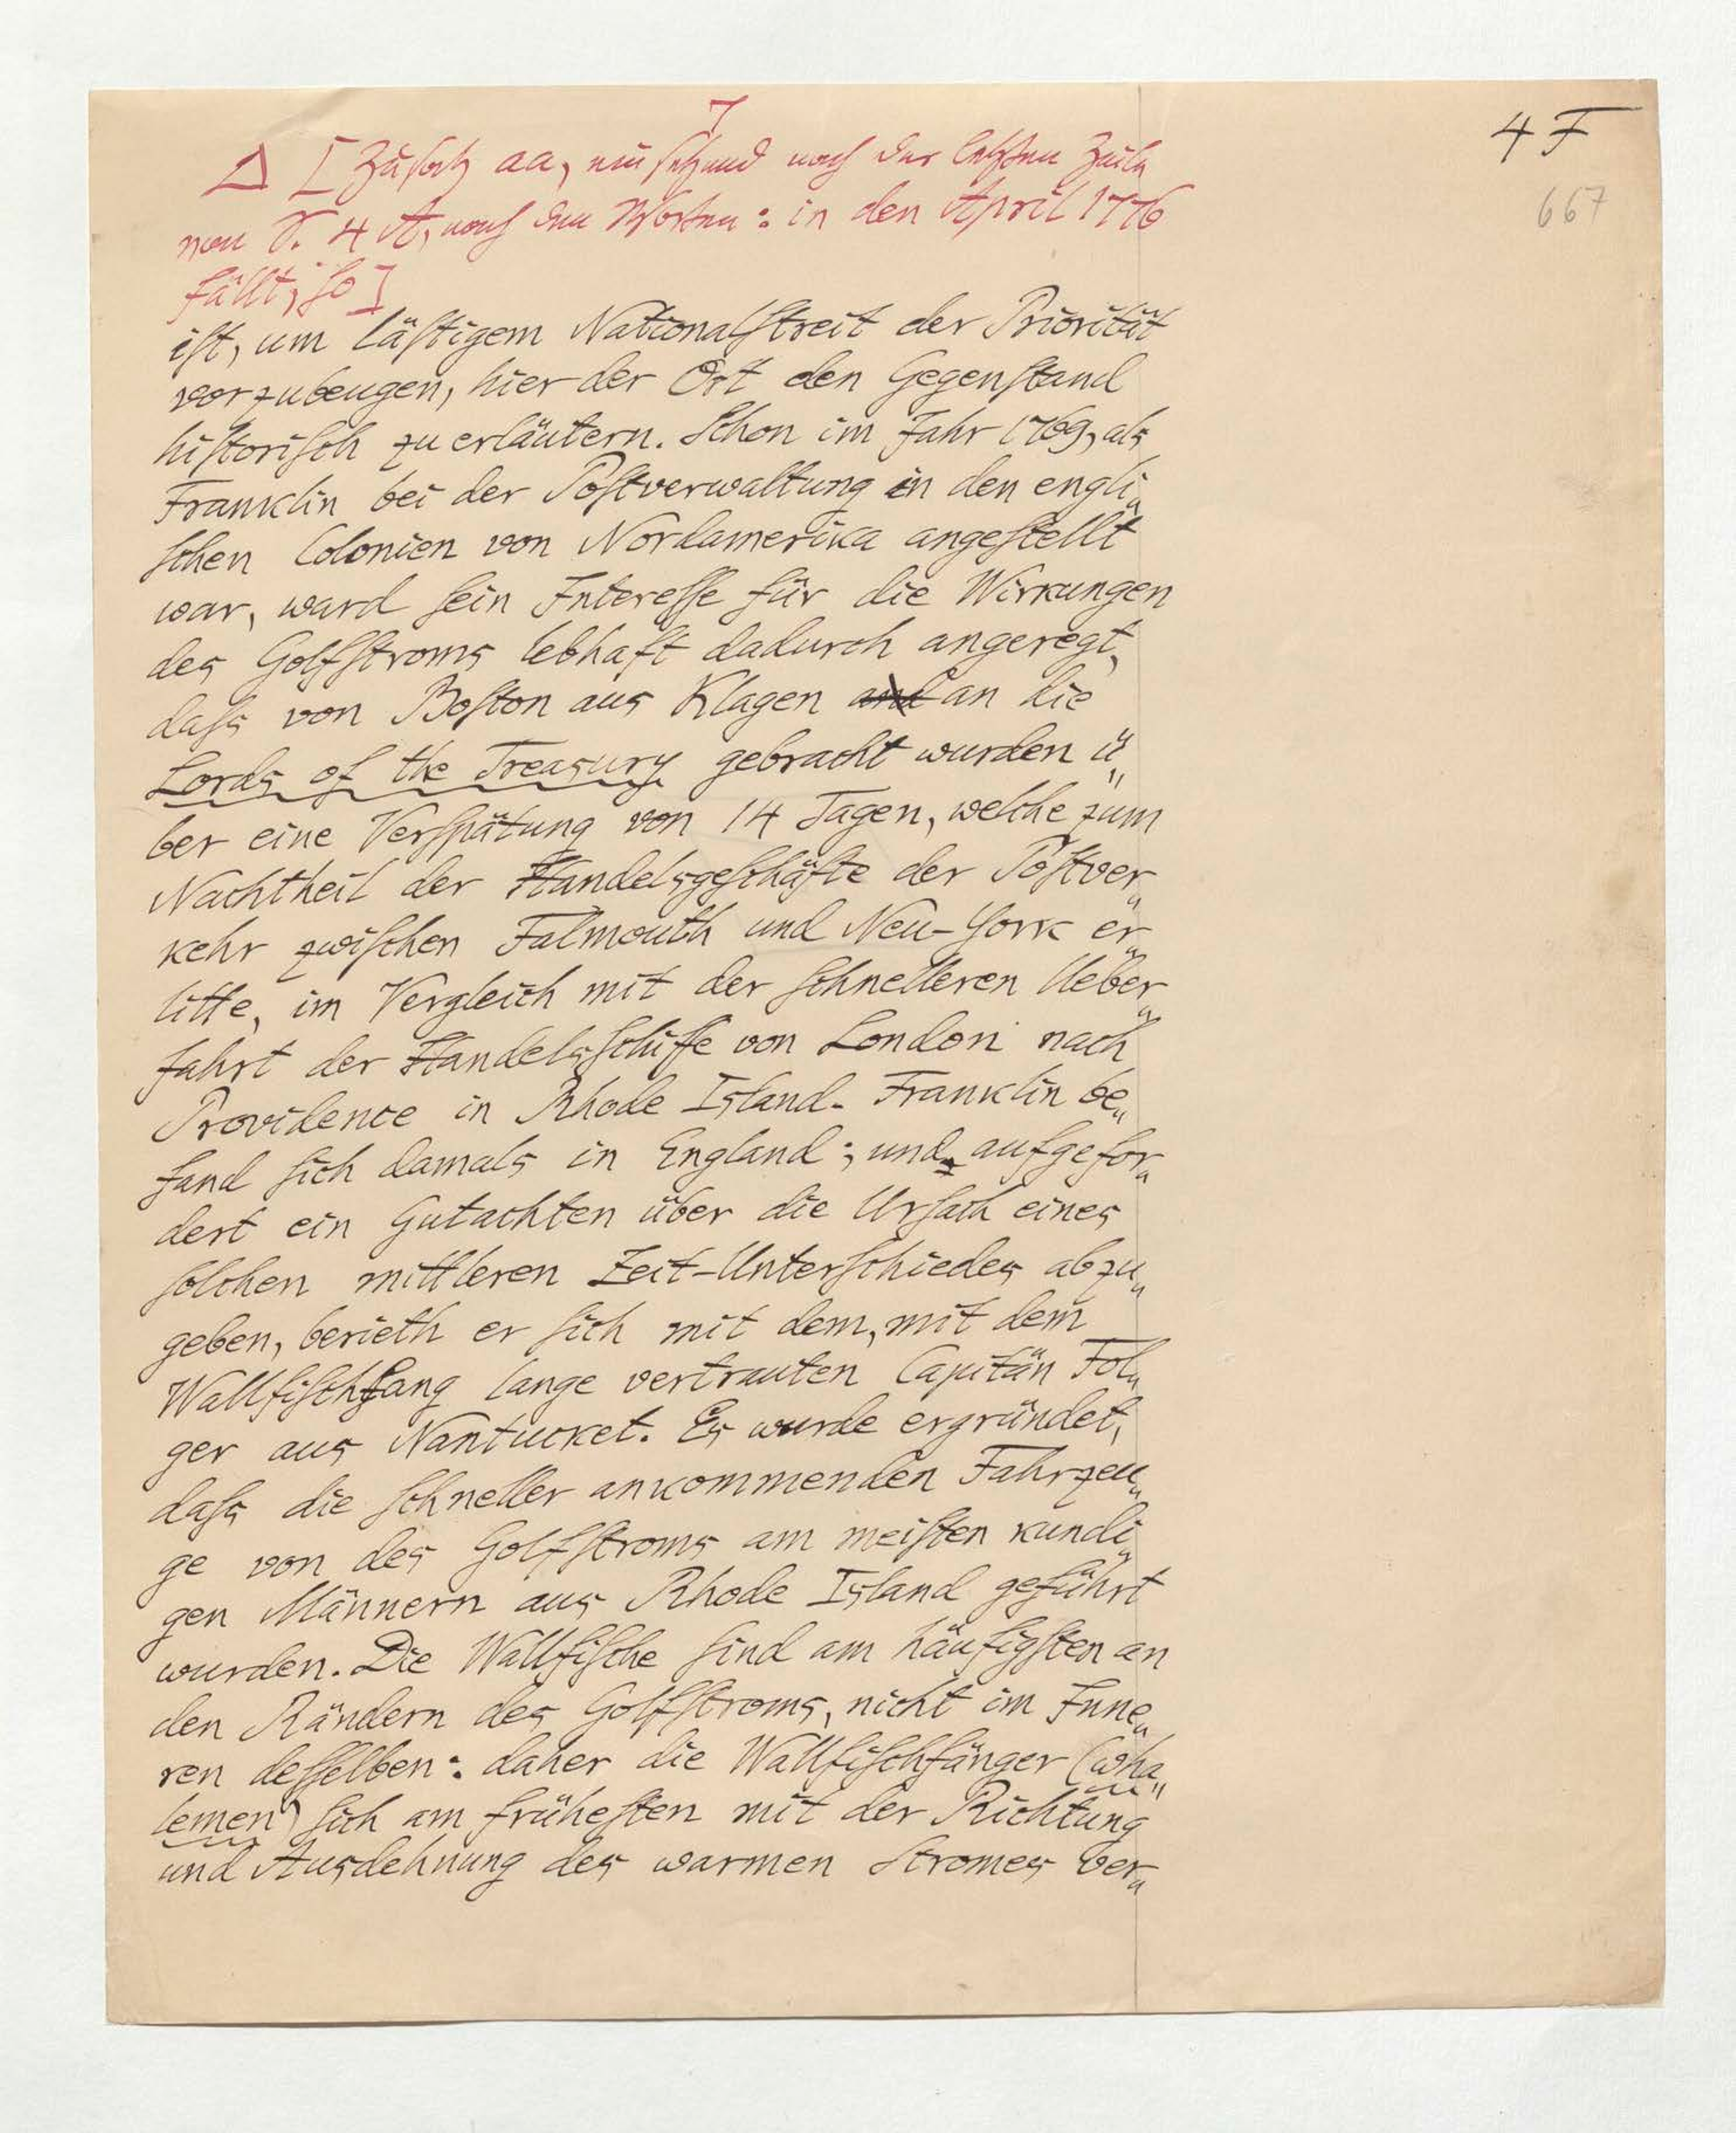 4 F
667
Δ [Zusatz aa, einsetzend nach der letzten Zeile
von S. 4 A, nach den Worten: in den April 1776
fällt, so]
ist, um lästigem Nationalstreit der Priorität
vorzubeugen, hier der Ort den Gegenstand
historisch zu erläutern. Schon im Jahr 1769, als
Franklin bei der Postverwaltung in den engli„
schen Colonien von Nordamerika angestellt
war, ward sein Interesse für die Wirkungen
des Golfstroms lebhaft dadurch angeregt,
dass von Boston aus Klagen and an die
Lords of the Treasury gebracht wurden ü„
ber eine Verspätung von 14 Tagen, welche zum
Nachtheil der Handelsgeschäfte der Postver„
kehr zwischen Falmouth und Neu-York er„
litte, im Vergleich mit der schnelleren Ueber„
fahrt der Handelsschiffe von London nach
Providence in Rhode Island. Franklin be„
fand sich damals in England; und, aufgefor„
dert ein Gutachten über die Ursach eines
solchen mittleren Zeit-Unterschiedes abzu„
geben, berieth er sich mit dem, mit dem
Wallfischfang lange vertrauten Capitän Fol„
ger aus Nantucket. Es wurde ergründet,
dass die schneller ankommenden Fahrzeu„
ge von des Golfstroms am meisten kundi„
gen Männern aus Rhode Island geführt
wurden. Die Wallfische sind am häufigsten an
den Rändern des Golfstroms, nicht im Inne„
ren desselben: daher die Wallfischfänger (wha„
lemen) sich am frühesten mit der Richtung
und Ausdehnung des warmen Stromes ver„